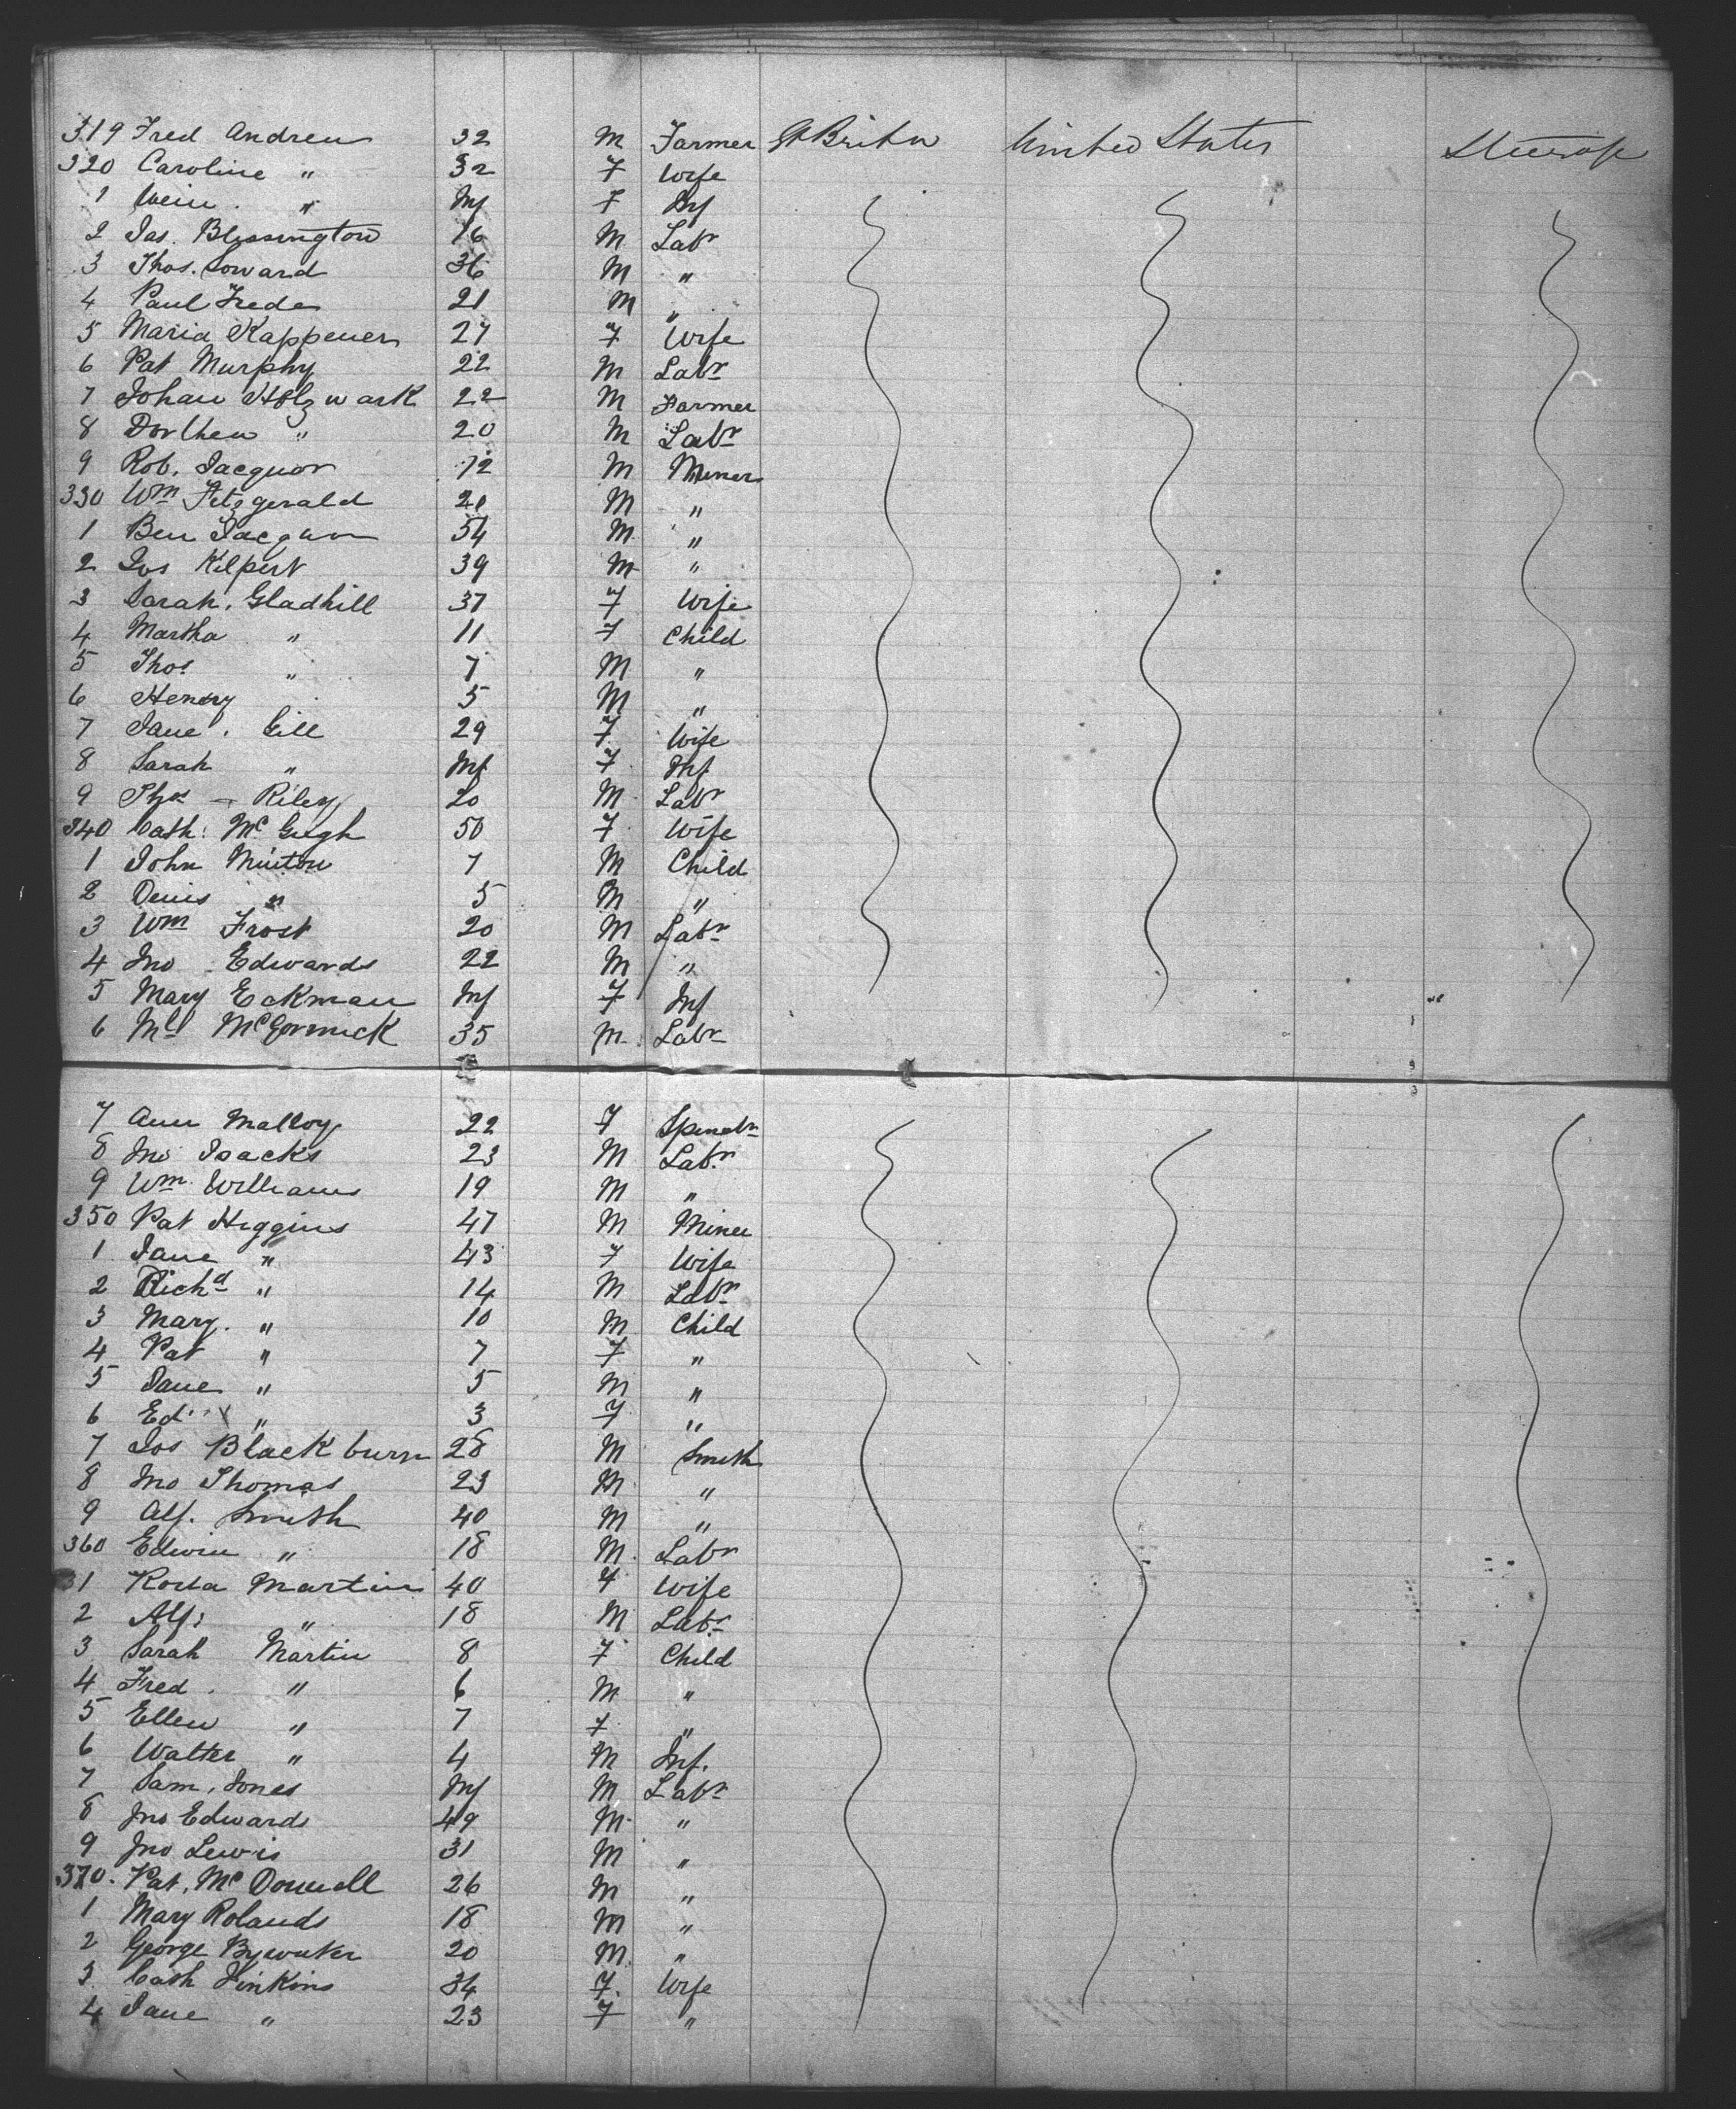 319 Fred Andreu 32 M Farmer Gt Britn United States Steerage
320 Caroline " 32 F Wife
1 " Inf F Inf
2 Jas. Blessington 16 M Labr
3 Thos. Coward 36 M "
4 Paul Frede 21 M "
5 Maria Kappener 27 F Wife
6 Pat Murphy 22 M Labr
7 Johan Holzwark 22 M Farmer
8 Dorthen " 20 M Labr
9 Rob. Jacquor 12 M Miner
330 Wm Fitzgerald 21 M "
1 Ben 54 M "
2 Jos Kilpert 39 M "
3 Sarah. Gladhill 37 F Wife
4 Martha " 11 F Child
5 Thos " 7 M "
6 Henry 5 M "
7 Jane. Gill 29 F Wife
8 Sarah " Inf F Inf
9 Thos - Riley 20 M Labr
340 Cath: McGugh 50 F Wife
1 John Minton 7 M Child
2 Denis " 5 M "
3 Wm Frost 20 M Labr
4 Jno Edwards 22 M "
5 Mary Eckman Inf F Inf
6 Ml McCormick 35 M Labr
7 Ann Malloy 22 F Spinstr
8 Jno Isacks 23 M Labr
9 Wm. Williams 19 M "
350 Pat Higgins 47 M Miner
1 Jane " 43 F Wife
2 Richd " 14 M Labr
3 Mary. " 10 M Child
4 Pat " 7 F "
5 Jane " 5 M "
6 Ed " 3 F "
7 Jos Blackburn 28 M Smith
8 Jno Thomas 23 M "
9 Alf. Smith 40 M "
360 Edwin " 18 M Labr
1 Martin 40 F Wife
2 Alf: " 18 M Labr
3 Sarah Martin 8 F Child
4 Fred. " 6 M "
5 Ellen " 7 F "
6 Walter " 4 M Inf.
7 Sam. Jones Inf M Labr
8 Jno Edwards 49 M "
9 Jno Lewis 31 M "
370. Pat. McDonnell 26 M "
1 Mary Rolands 18 M "
2 George Bywater 20 M "
3 Cath Jinkins 34 F Wife
4 Jane " 23 F "